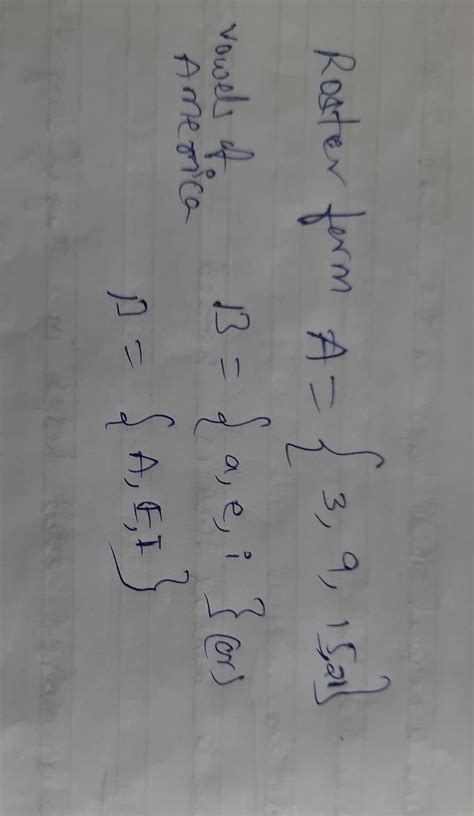 Roster form A = { 3, 9, 15, 21}
vowels of America B = { a, e, i } (or)
B = { A, E, I }